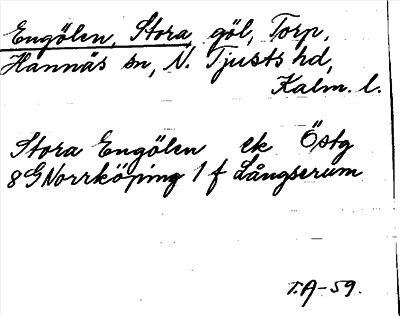 Engölen, Stora, göl, Torp,
Hannäs sn, N. Tjusts hd,
Kalm. l.
Stora Engölen ek Östg
8G Norrköping 1 f Långserum
T.A-59.